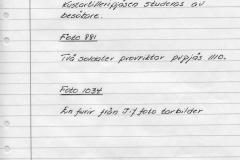 Kustartilleripjäsen studeras av
besökare.
Foto 881
Två soldater provriktar pvpjäs 1110.
Foto 1034
En furir från I:17 foto tarbilder